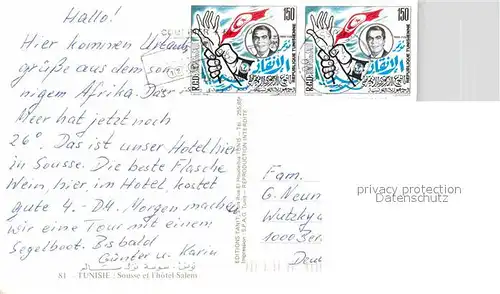 Hallo!
Hier kommen Urlaubs
grüße aus dem son
nigem Afrika. Das
Meer hat jetzt noch
26°. Das ist unser Hotel hier
in Sousse. Die beste Flasche
Wein, hier, im Hotel, kostet
gute 4.- DM. Morgen machen
wir eine Tour mit einem
Segelboot. Bis bald
Günter u. Karin
تونس - سوسة نزل سالم
81 - TUNISIE : Sousse et l'hôtel Salem
150
REPUBLIQUE TUNISIENNE
150
REPUBLIQUE TUNISIENNE
EDITIONS TANIT
REPRODUCTION INTERDITE
Fam.
G. Neum
Wutzky
1000 Ber
Deu
privacy protection
Datenschutz